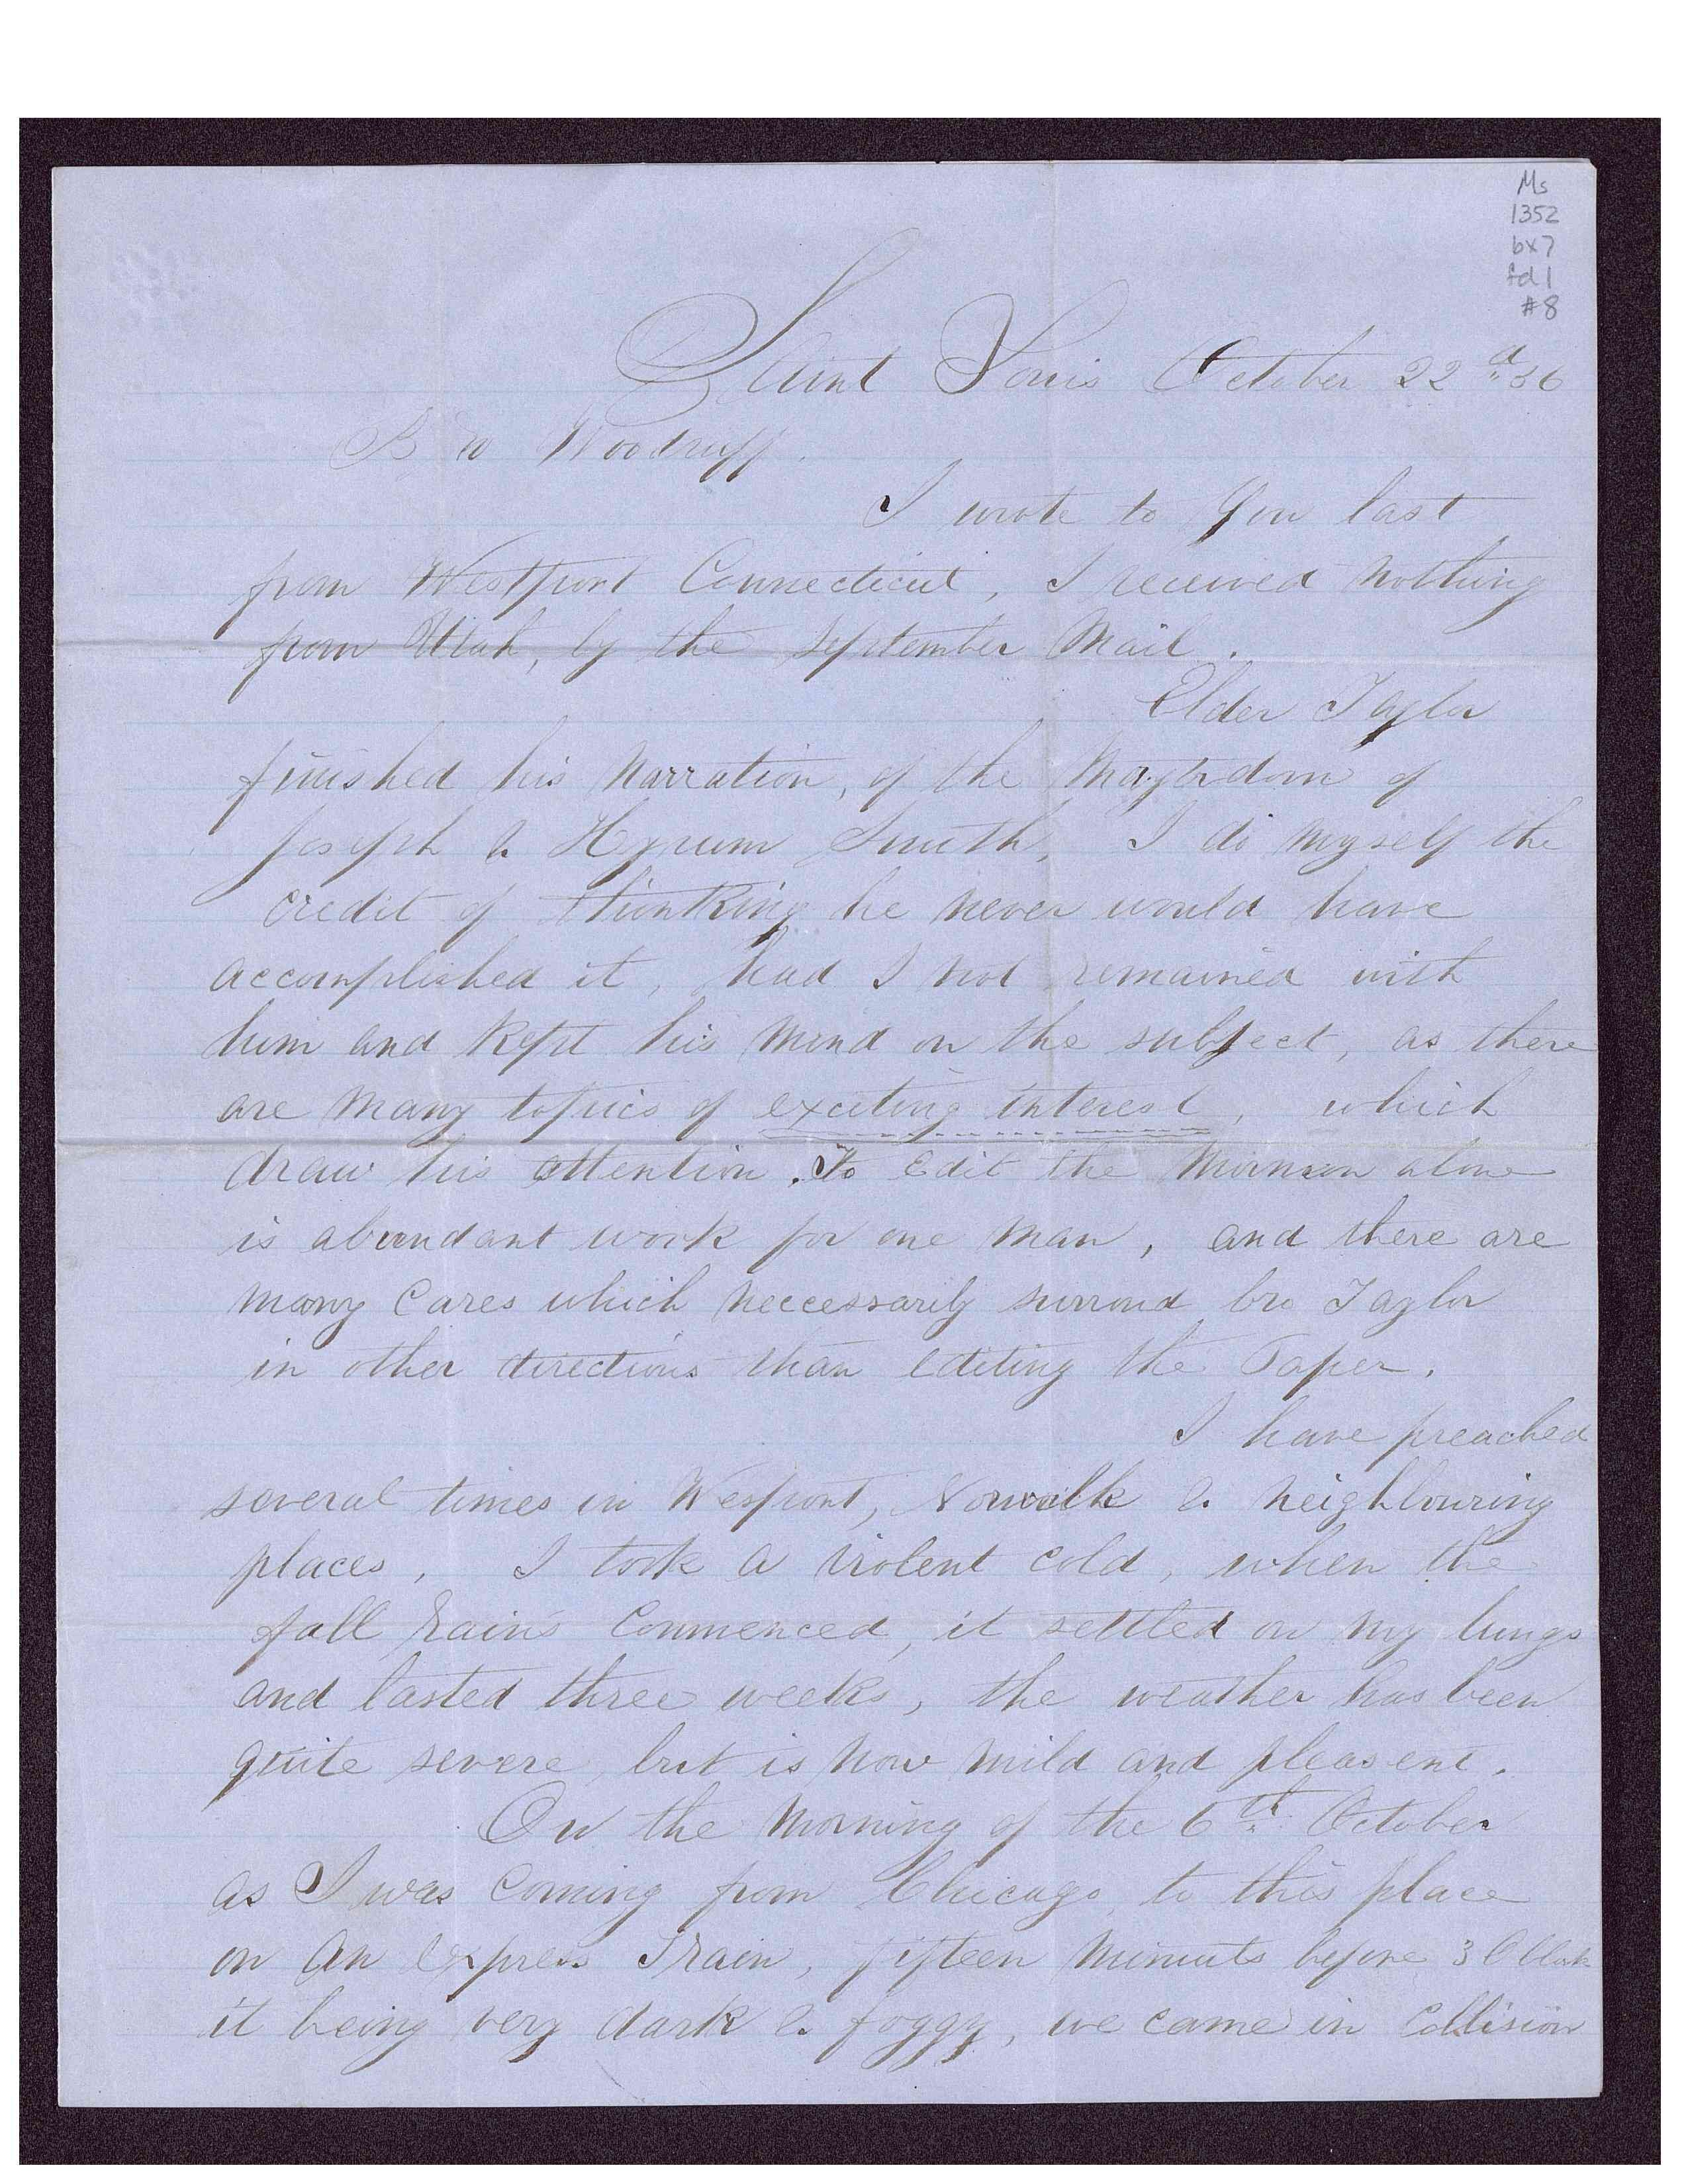 Ms
1352
bx7
fd 1
#8
Saint Louis October 22d 56
B W Woodruff.
I wrote to you last
from Westport Connecticut, I received nothing
from Utah, by the September Mail.
Elder Taylor
finished his Narration, of the Martyrdom of
Joseph & Hyrum Smith, I do myself the
credit of thinking he never would have
accomplished it, had I not remained with
him and kept his mind on the subject, as there
are many topics of exciting interest, which
draw his attention. To Edit the Mormon alone
is abundant work for one man, and there are
many Cares which neccessarily surround bro Taylor
in other directions than Editing the Paper.
I have preached
several times in Wesport, Norwalk & neighbouring
places, I took a violent cold, when the
fall rains Commenced, it settled on my lungs
and lasted three weeks, the weather has been
quite severe, but is now mild and pleasent.
On the Morning of the 6th October
as I was Coming from Chicago, to this place
on An Express Train, fifteen minuits before 3 O Clock
it being very dark & foggy, we came in Collision